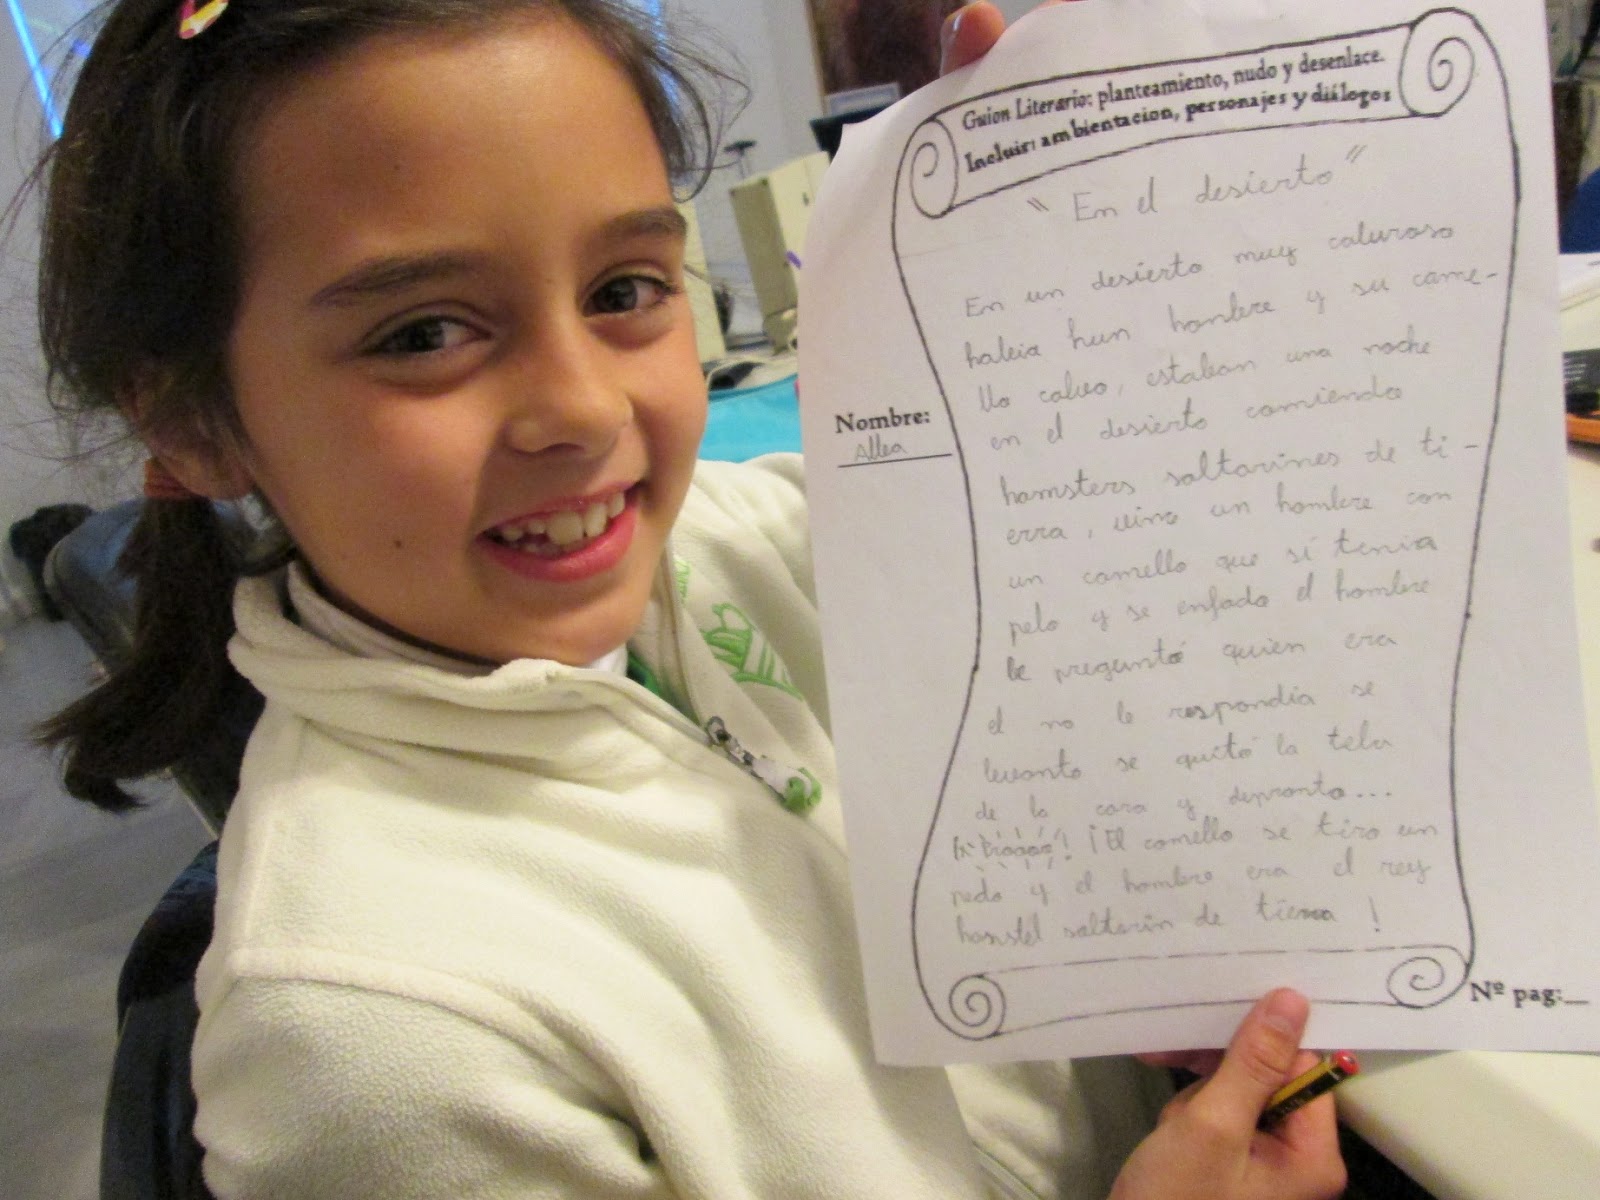 Guion Literario: planteamiento, nudo y desenlace.
Incluir: ambientacion, personajes y diálogos
"En el desierto"
En un desierto muy caluroso
habia hun hombre y su came-
llo calvo, estaban una noche
en el desierto comiendo
hamsters saltarines de ti-
erra, vino un hombre con
un camello que sí tenia
pelo y se enfado el hombre
le preguntó quien era
el no le respondía se
levanto se quitó la tela
de la cara y depronto...
¡El camello se tiro un
pedo y el hombre era el rey
saltarin de tierra!
Nombre:
Nº pag: